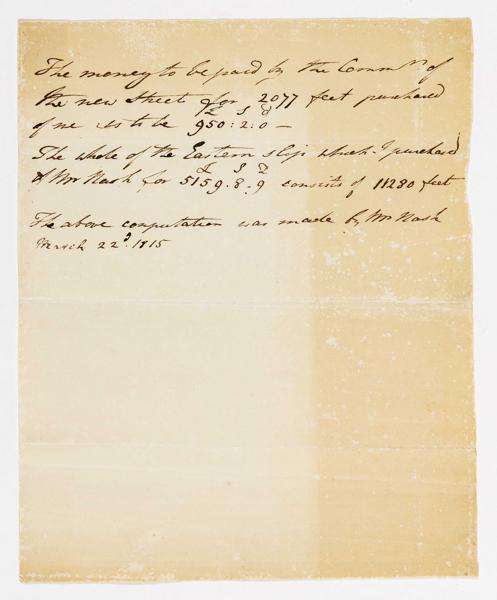 The money to be paid by the Comm.rs of
the new Street for 2077 feet purchased
£ S d
of me is to be 950 : 2 : 0 —
The whole of the Eastern slip which I purchased
£ S D
of Mr Nash for 5159 . 8 . 9 consists of 11280 feet
The above computation was made by Mr Nash
March 22d. 1815